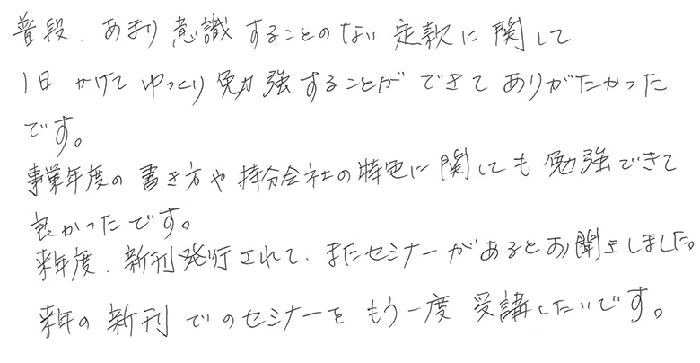 普段、あまり意識することのない定款に関して
1日かけてゆっくり勉強することができてありがたかった
です。
事業年度の書き方や持分会社の特色に関しても勉強できて
良かったです。
来年度、新刊発行されて、またセミナーがあるとお聞きしました。
来年の新刊でのセミナーをもう一度受講したいです。